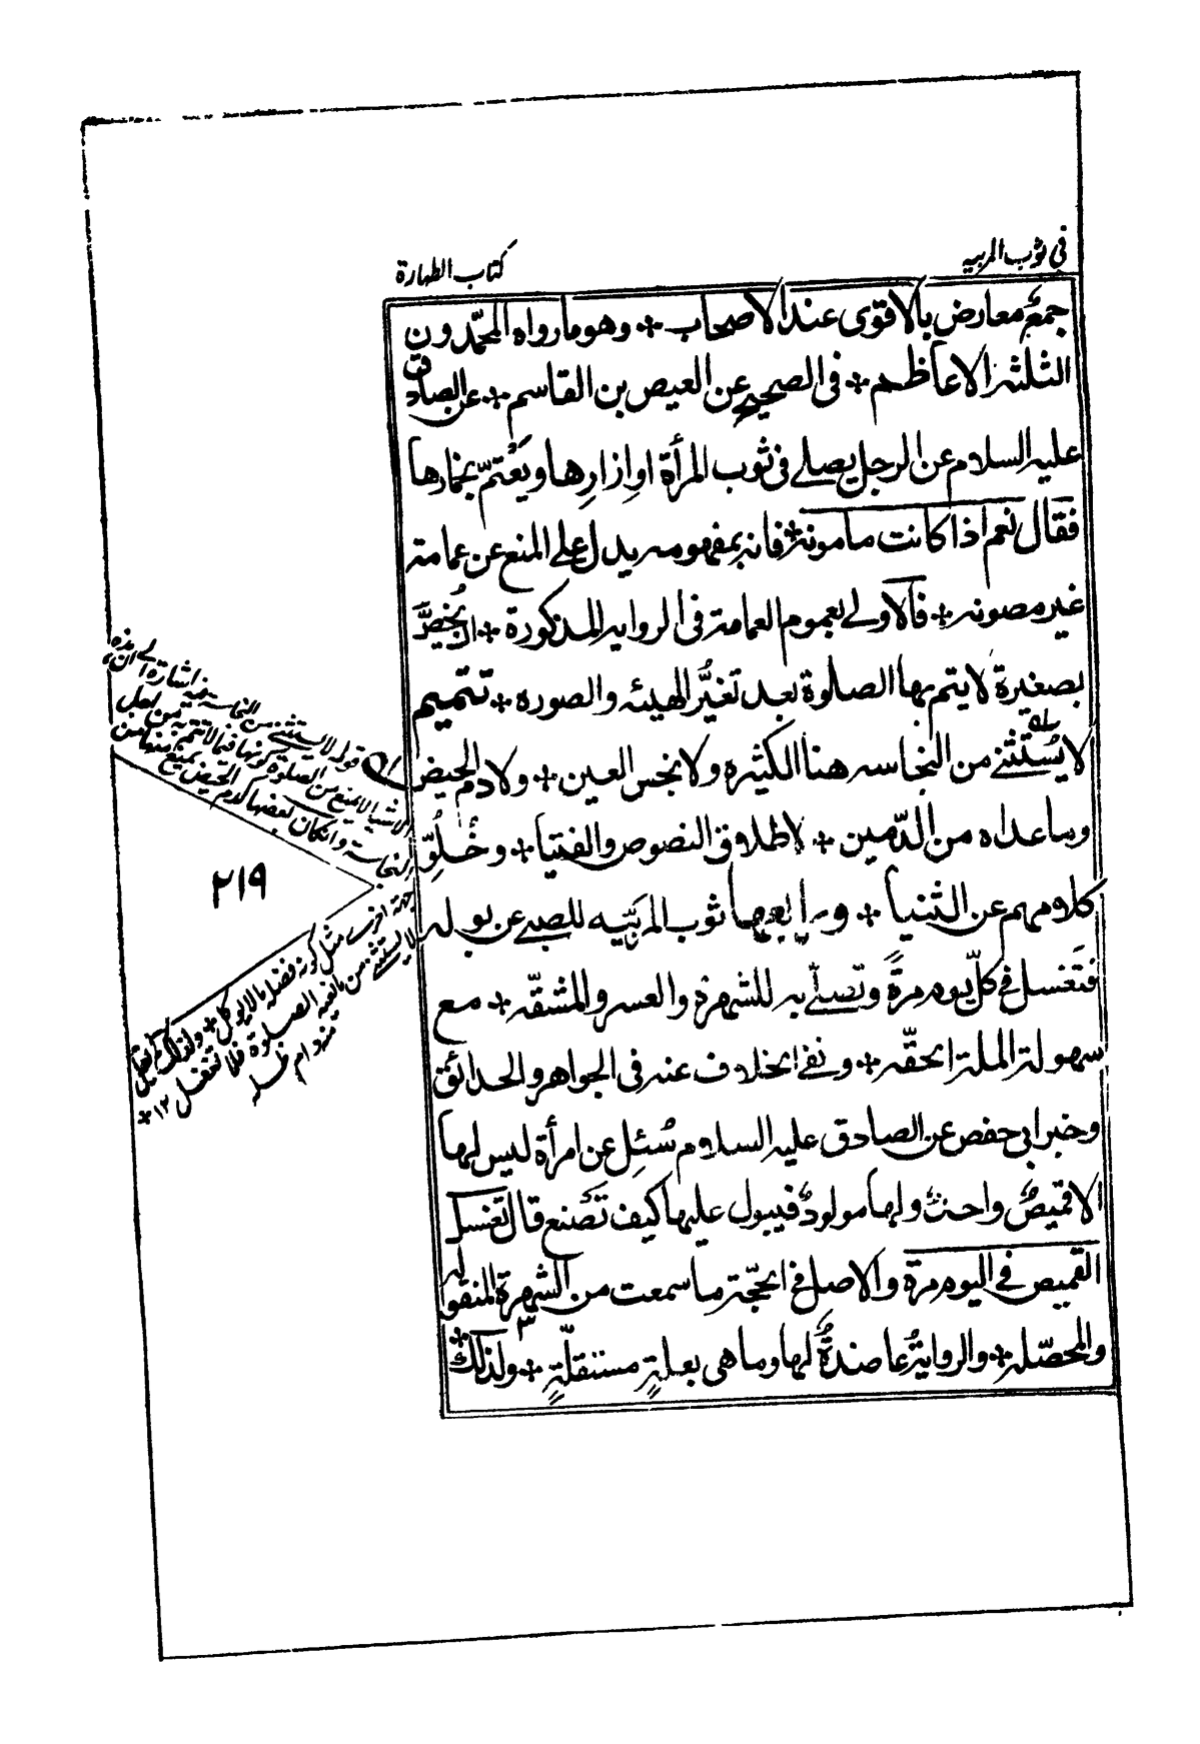 في ثوب المربيه
كتاب الطهارة
جمعٌ معارض بالاقوى عند الاصحاب * وهو مارواه المحمّدون
الثلثة الاعاظم * فى الصحيح عن العيص بن القاسم * عن الصادق
عليه السلام عن الرجل يصلے فى ثوب المرأة او ازارِها ويَعْتمّ بخمارها
فقال نعم اذا كانت مامونة * فانه بمفهومه يدل على المنع عن عمامة
غير مصونه * فالاولے بعموم العمامة فى الرواية المذكورة * ان يُخصَّ
بصغيرة لا يتم بها الصلوة بعد تغيُّر الهيئه والصوره * تتميم
لا يُستثنے من النجاسه هنا الكثيره ولا نجس العين * ولا دم الحيض
وما عداه من الدّمين * لاطلاق النصوص والفتيا * وخُلُوّ
كلامهم عن الثنيا * ورابعها ثوب المربّيه للصبے عن بوله
فتَغسل فے كلّ يوم مرةً وتصلّے به للشهرة والعسر والمشقّه * مع
سهولة الملة الحقّه * ونفے الخلاف عنه فى الجواهر والحدائق
وخبر ابى حفص عن الصادق عليه السلام سُئِل عن امرأة ليس لها
الا قميصٌ واحدٌ ولها مولودٌ فيبول عليها كيف تَصنع قال تغسل
القميص فے اليوم مرة والاصل فے الحجّة ما سمعت من الشهرة المنقوله
والمحصّله * والرواية عاضدةٌ لها وما هى بعلةٍ مستقلّةٍ * ولذلك
قوله لا يستثنے من النجاسة فيه اشارة الے ان هذه
الاشيا لا يمنع من الصلوة كونها فيما لا تتم به من اجل
النجاسة وان كان بعضها كدم الحيض يمنع منها من
جهة اخرے مثل كونه فضلة ما لا يوكل * ولذلك لم يقل
لا يستثنے من مانعية الصلوة فلا تغفل ١٢ *
منه دام ظله
٢١٩